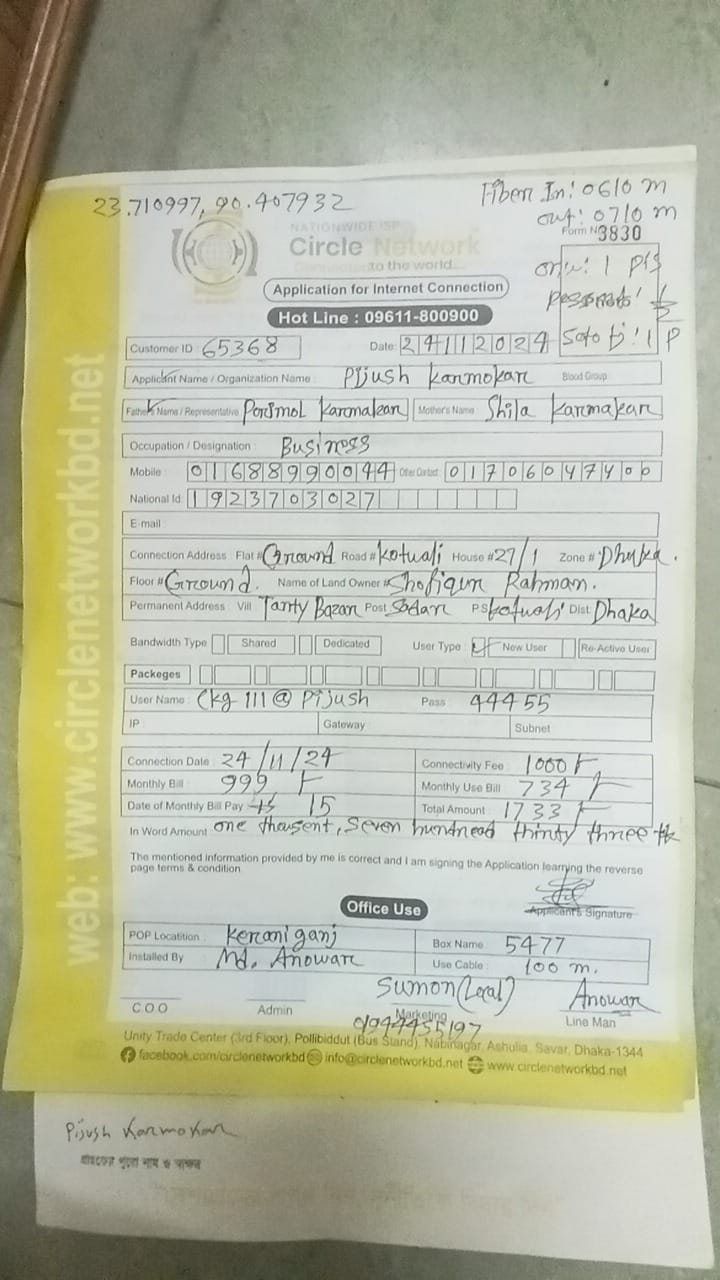 23.710997, 90.407932
Fiber In: 0610 m
out: 0710 m
Form Nº 3830
NATIONWIDE ISP
Circle Network
Connected to the world...
onu: 1 pis
Application for Internet Connection
Hot Line : 09611-800900
Customer ID : 65368
Date: 24112024
1 P
Applicant Name / Organization Name : Pijush Karmokar Blood Group
Father's Name / Representative Porimol Karmakar Mother's Name Shila Karmakar
Occupation / Designation : Business
Mobile : 01688990044 Other Contact: 01706047400
National Id: 1923703027
E-mail
Connection Address : Flat # Ground Road # Kotwali House # 27/1 Zone # Dhaka.
Floor # Ground. Name of Land Owner # Shofiqur Rahman.
Permanent Address : Vill Tanty Bazar Post Sodar PS Kotwali Dist: Dhaka
Bandwidth Type Shared Dedicated User Type : New User Re-Active User
Packeges
User Name : Ckg 111 @ Pijush Pass : 44455
IP : Gateway Subnet
Connection Date : 24/11/24 Connectivity Fee : 1000
Monthly Bill : 999 Monthly Use Bill : 734
Date of Monthly Bill Pay 15 Total Amount : 1733
In Word Amount one thousent, seven hundread thirty three tk
The mentioned information provided by me is correct and I am signing the Application learning the reverse
page terms & condition
Applicant's Signature
Office Use
POP Locatition : Keraniganj Box Name : 5477
Installed By : Md. Anowar Use Cable : 100 m.
Sumon (Leral) Anowar
C O O Admin Marketing Line Man
01944455197
Unity Trade Center (3rd Floor), Pollibiddut (Bus Stand), Nabinagar, Ashulia, Savar, Dhaka-1344
facebook.com/circlenetworkbd info@circlenetworkbd.net www.circlenetworkbd.net
web: www.circlenetworkbd.net
Pijush Karmokar
গ্রাহকের পুরো নাম ও স্বাক্ষর